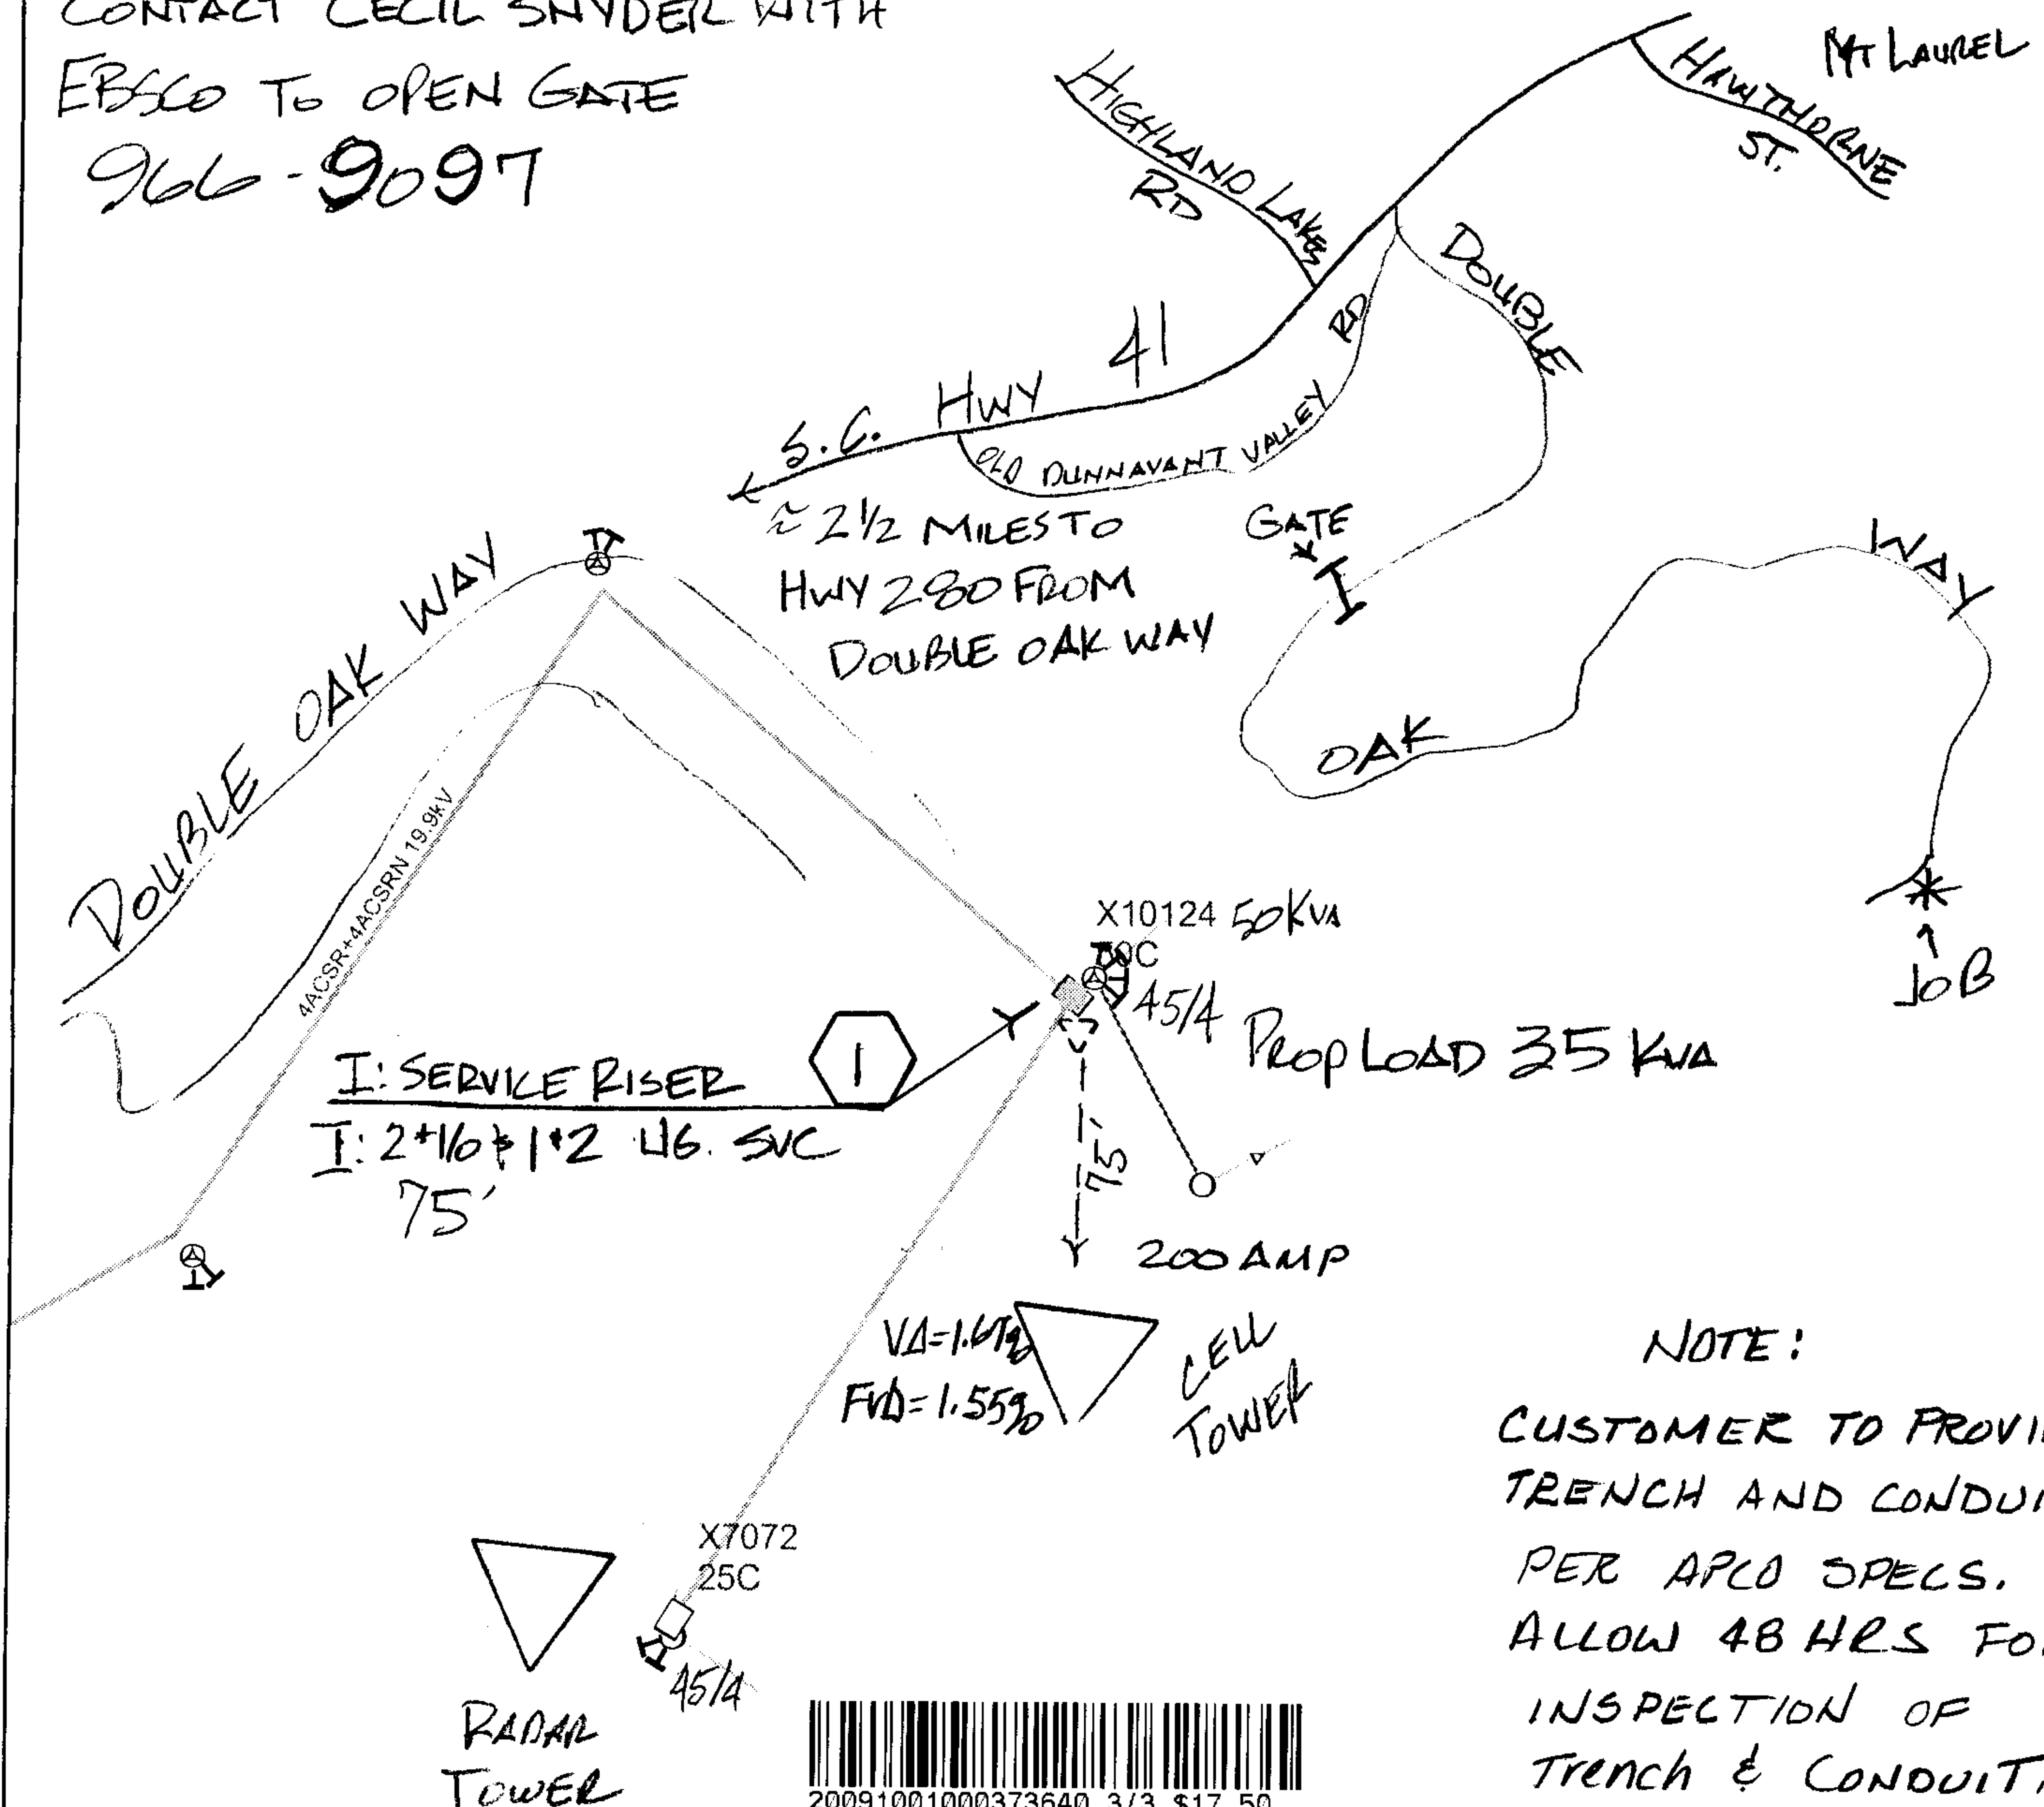 CONTACT CECIL SNYDER WITH
EBSCO TO OPEN GATE
966-9097
MT LAUREL
HAWTHORNE
ST.
HIGHLAND LAKES
RD
DOUBLE
S.C. HWY 41
OLD DUNNAVANT VALLEY RD
≈ 2 1/2 MILES TO
HWY 280 FROM
DOUBLE OAK WAY
GATE
OAK
WAY
JOB
DOUBLE OAK WAY
4ACSR+4ACSRN 19.9kV
X10124 50 KVA
45/4
PROP LOAD 35 KVA
1
I: SERVICE RISER
I: 2#1/0 & 1#2 UG. SVC
75'
75'
200 AMP
FVD=1.55%
CELL
TOWER
X7072
25C
45/4
RADAR
TOWER
NOTE:
CUSTOMER TO PROVI
TRENCH AND CONDUI
PER APCO SPECS.
ALLOW 48 HRS FO
INSPECTION OF
Trench & CONDUIT
20091001000373640 3/3 $17.50